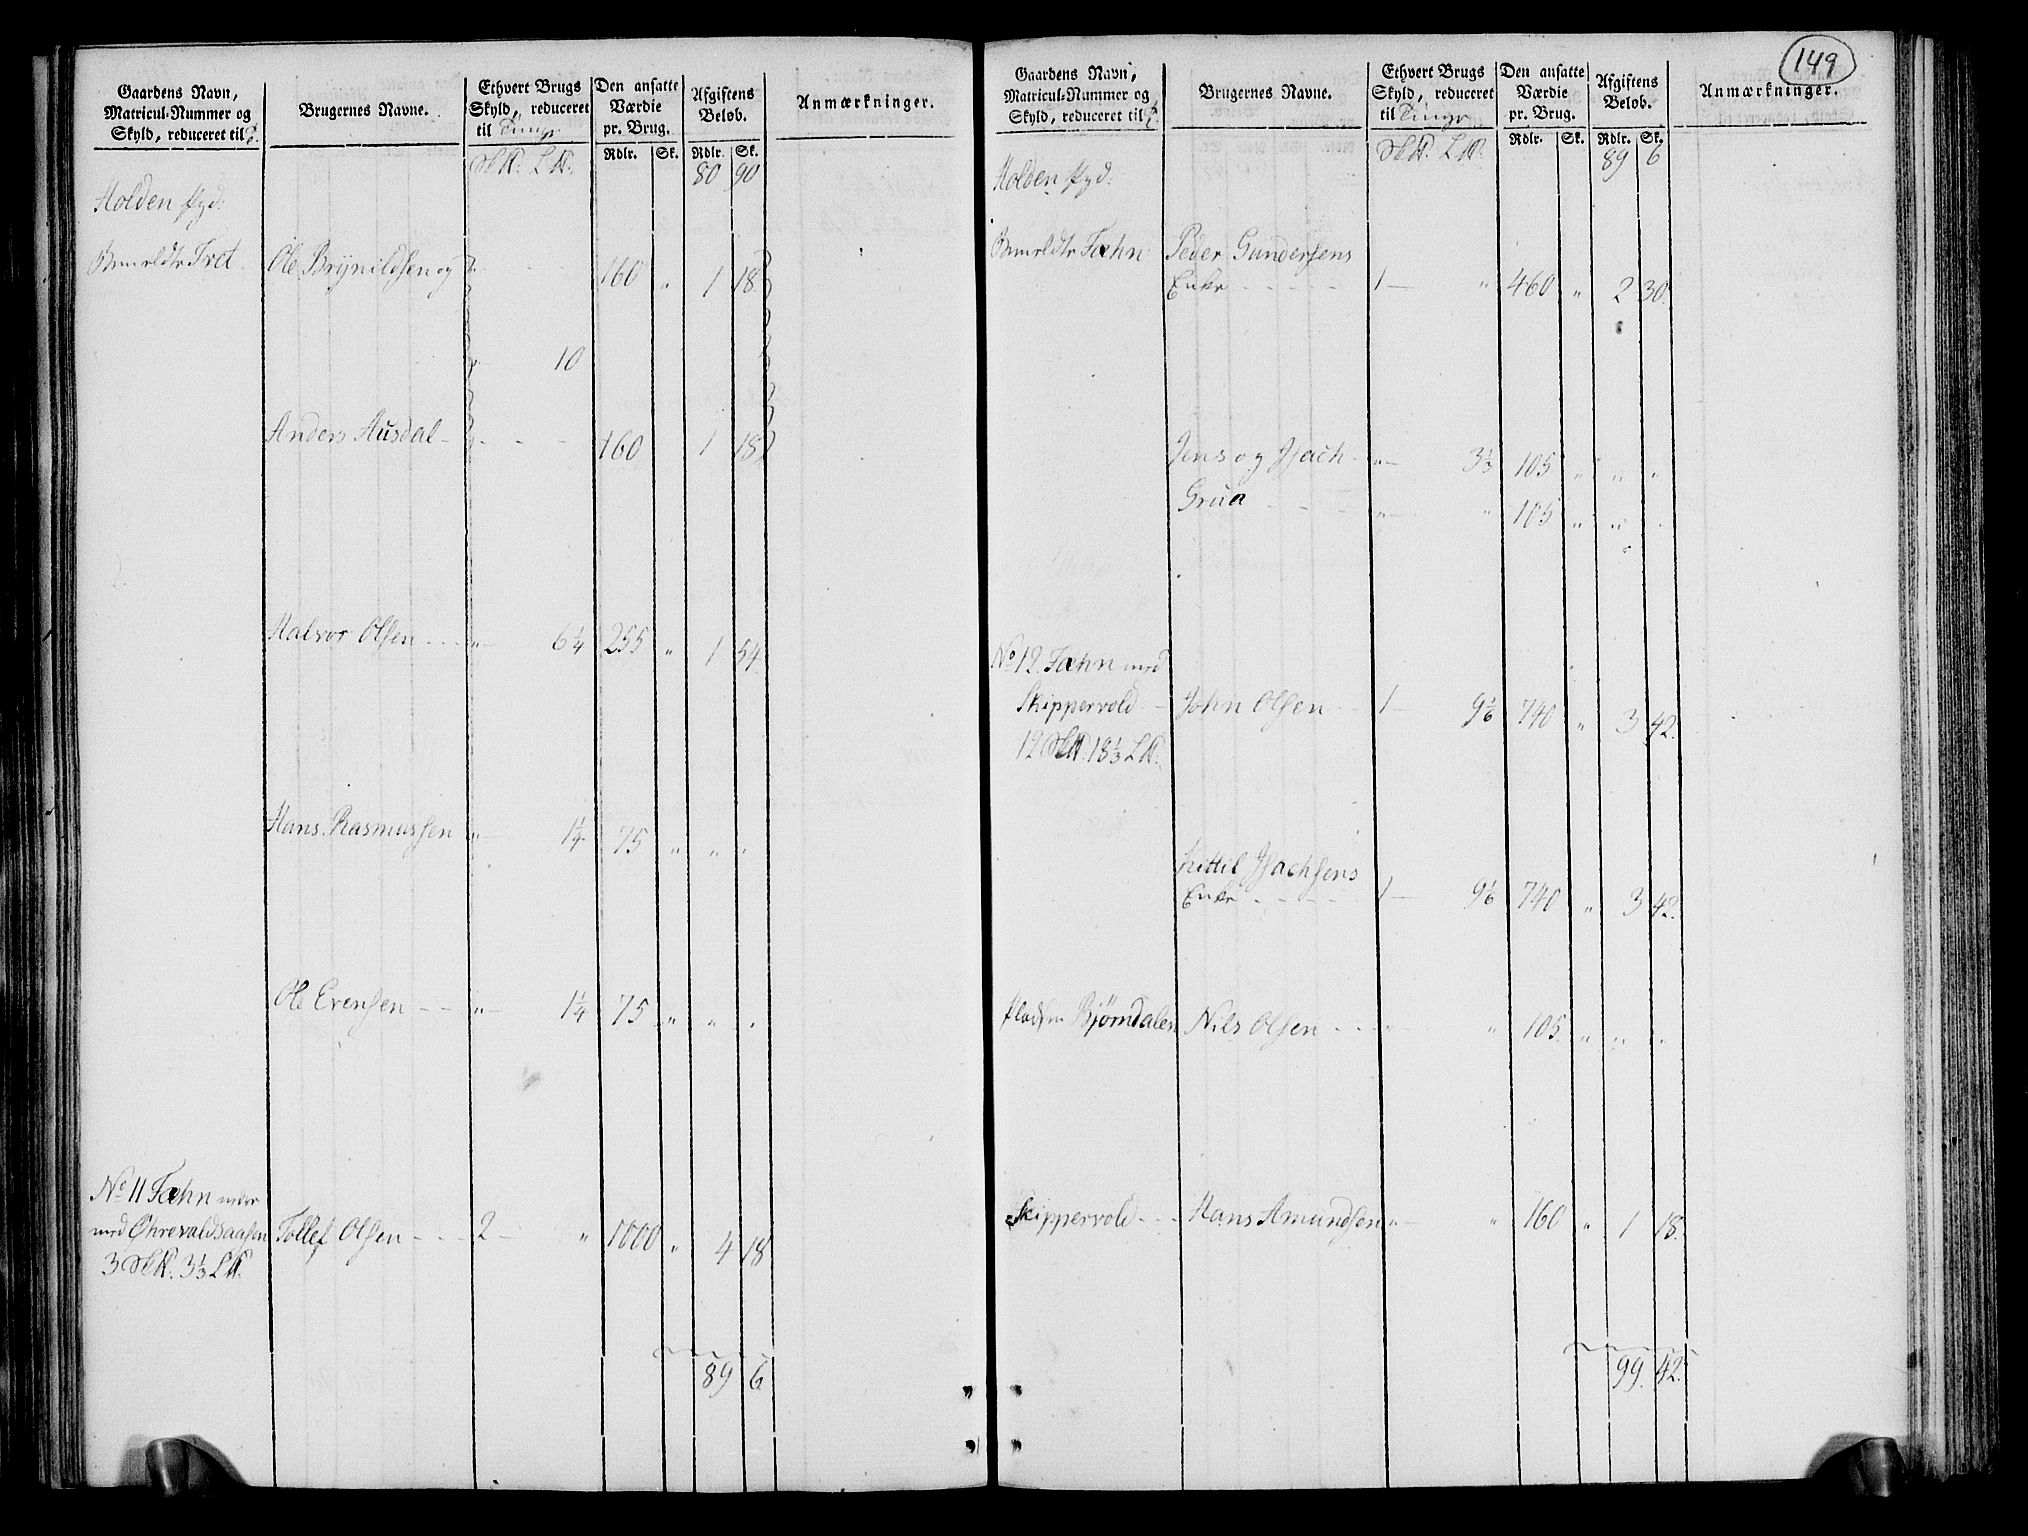 149
Gaardens Navn, Matricul-Nummer og Skyld, reduceret til
Brugernes Navne.
Ethvert Brugs Skyld, reduceret til Tunge
Den ansatte Værdie pr. Brug.
Afgiftens Beløb.
Anmærkninger.
Rdlr. Sk. Rdlr. Sk.
80 90
Holden
Tret Ole Brynildsen og " 160 " 1 18
10
Anders Ausdal 160 1 18
Halvor Olsen " 6 1/4 255 " 1 54
Hans Rasmussen " 1 1/4 75 " " "
Ole Evensen " 1 1/4 75 " " "
No 11 Fæhn
med Øhrevaldsaasen Tollef Olsen 2 " 1000 " 4 18
3 3 1/3
89 6
Gaardens Navn, Matricul-Nummer og Skyld, reduceret til
Brugernes Navne.
Ethvert Brugs Skyld, reduceret til Tunge
Den ansatte Værdie pr. Brug.
Afgiftens Beløb.
Anmærkninger.
Rdlr. Sk. Rdlr. Sk.
89 6
Holden
Fæhn Peder Gundersens
Enke 1 " 460 " 2 30
Jens og Isach " 3 1/3 105 " " "
Grua " " 105 " " "
No 12 Fæhn med
Skippervold John Olsen 1 9 1/6 740 " 3 42
12 18 1/3
Kittil Isachsens
Enke 1 9 1/6 740 " 3 42
Pladsen Bjørndalen Nils Olsen " " 105 " " "
Skippervold Hans Amundsen " " 160 " 1 18
99 42